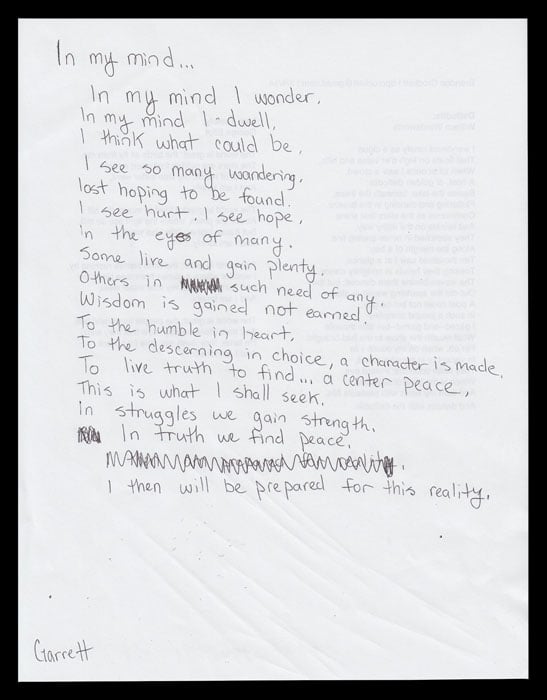 In my mind...
In my mind I wonder.
In my mind I dwell.
I think what could be.
I see so many wandering.
lost hoping to be found.
I see hurt. I see hope.
in the eyes of many.
Some live and gain plenty.
Others in such need of any.
Wisdom is gained not earned.
To the humble in heart.
To the descerning in choice, a character is made.
To live truth to find... a center peace,
This is what I shall seek.
in struggles we gain strength.
In truth we find peace.
I then will be prepared for this reality.
Garrett